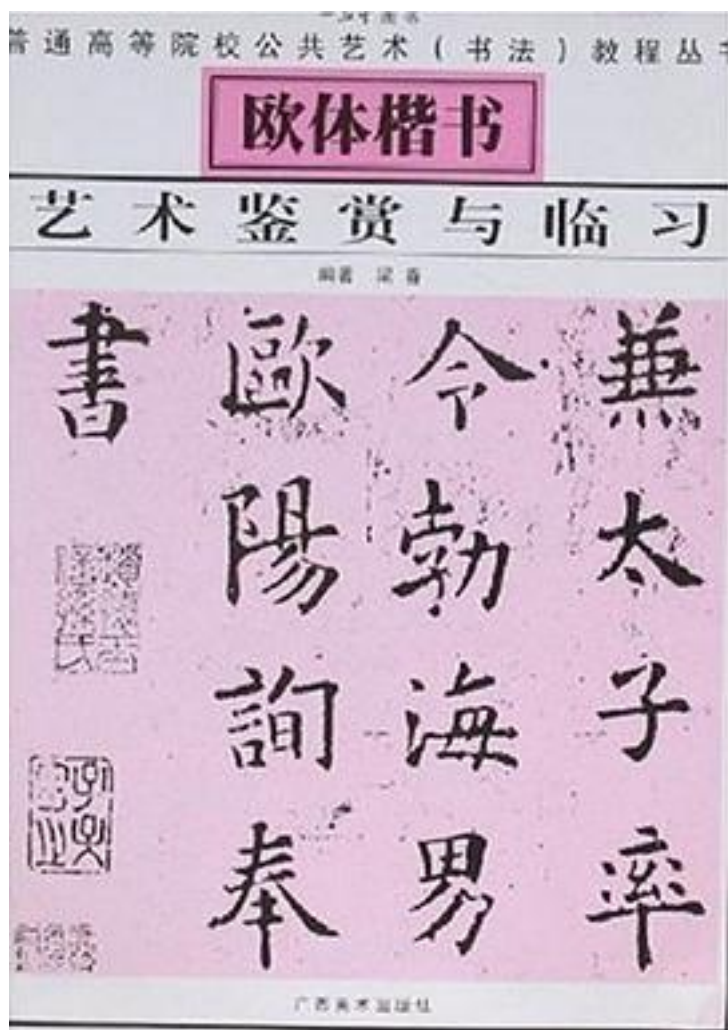 普通高等院校公共艺术(书法)教程丛书
欧体楷书
艺术鉴赏与临习
编著 梁
兼太子率
令勃海男
歐陽詢奉
書
广西美术出版社